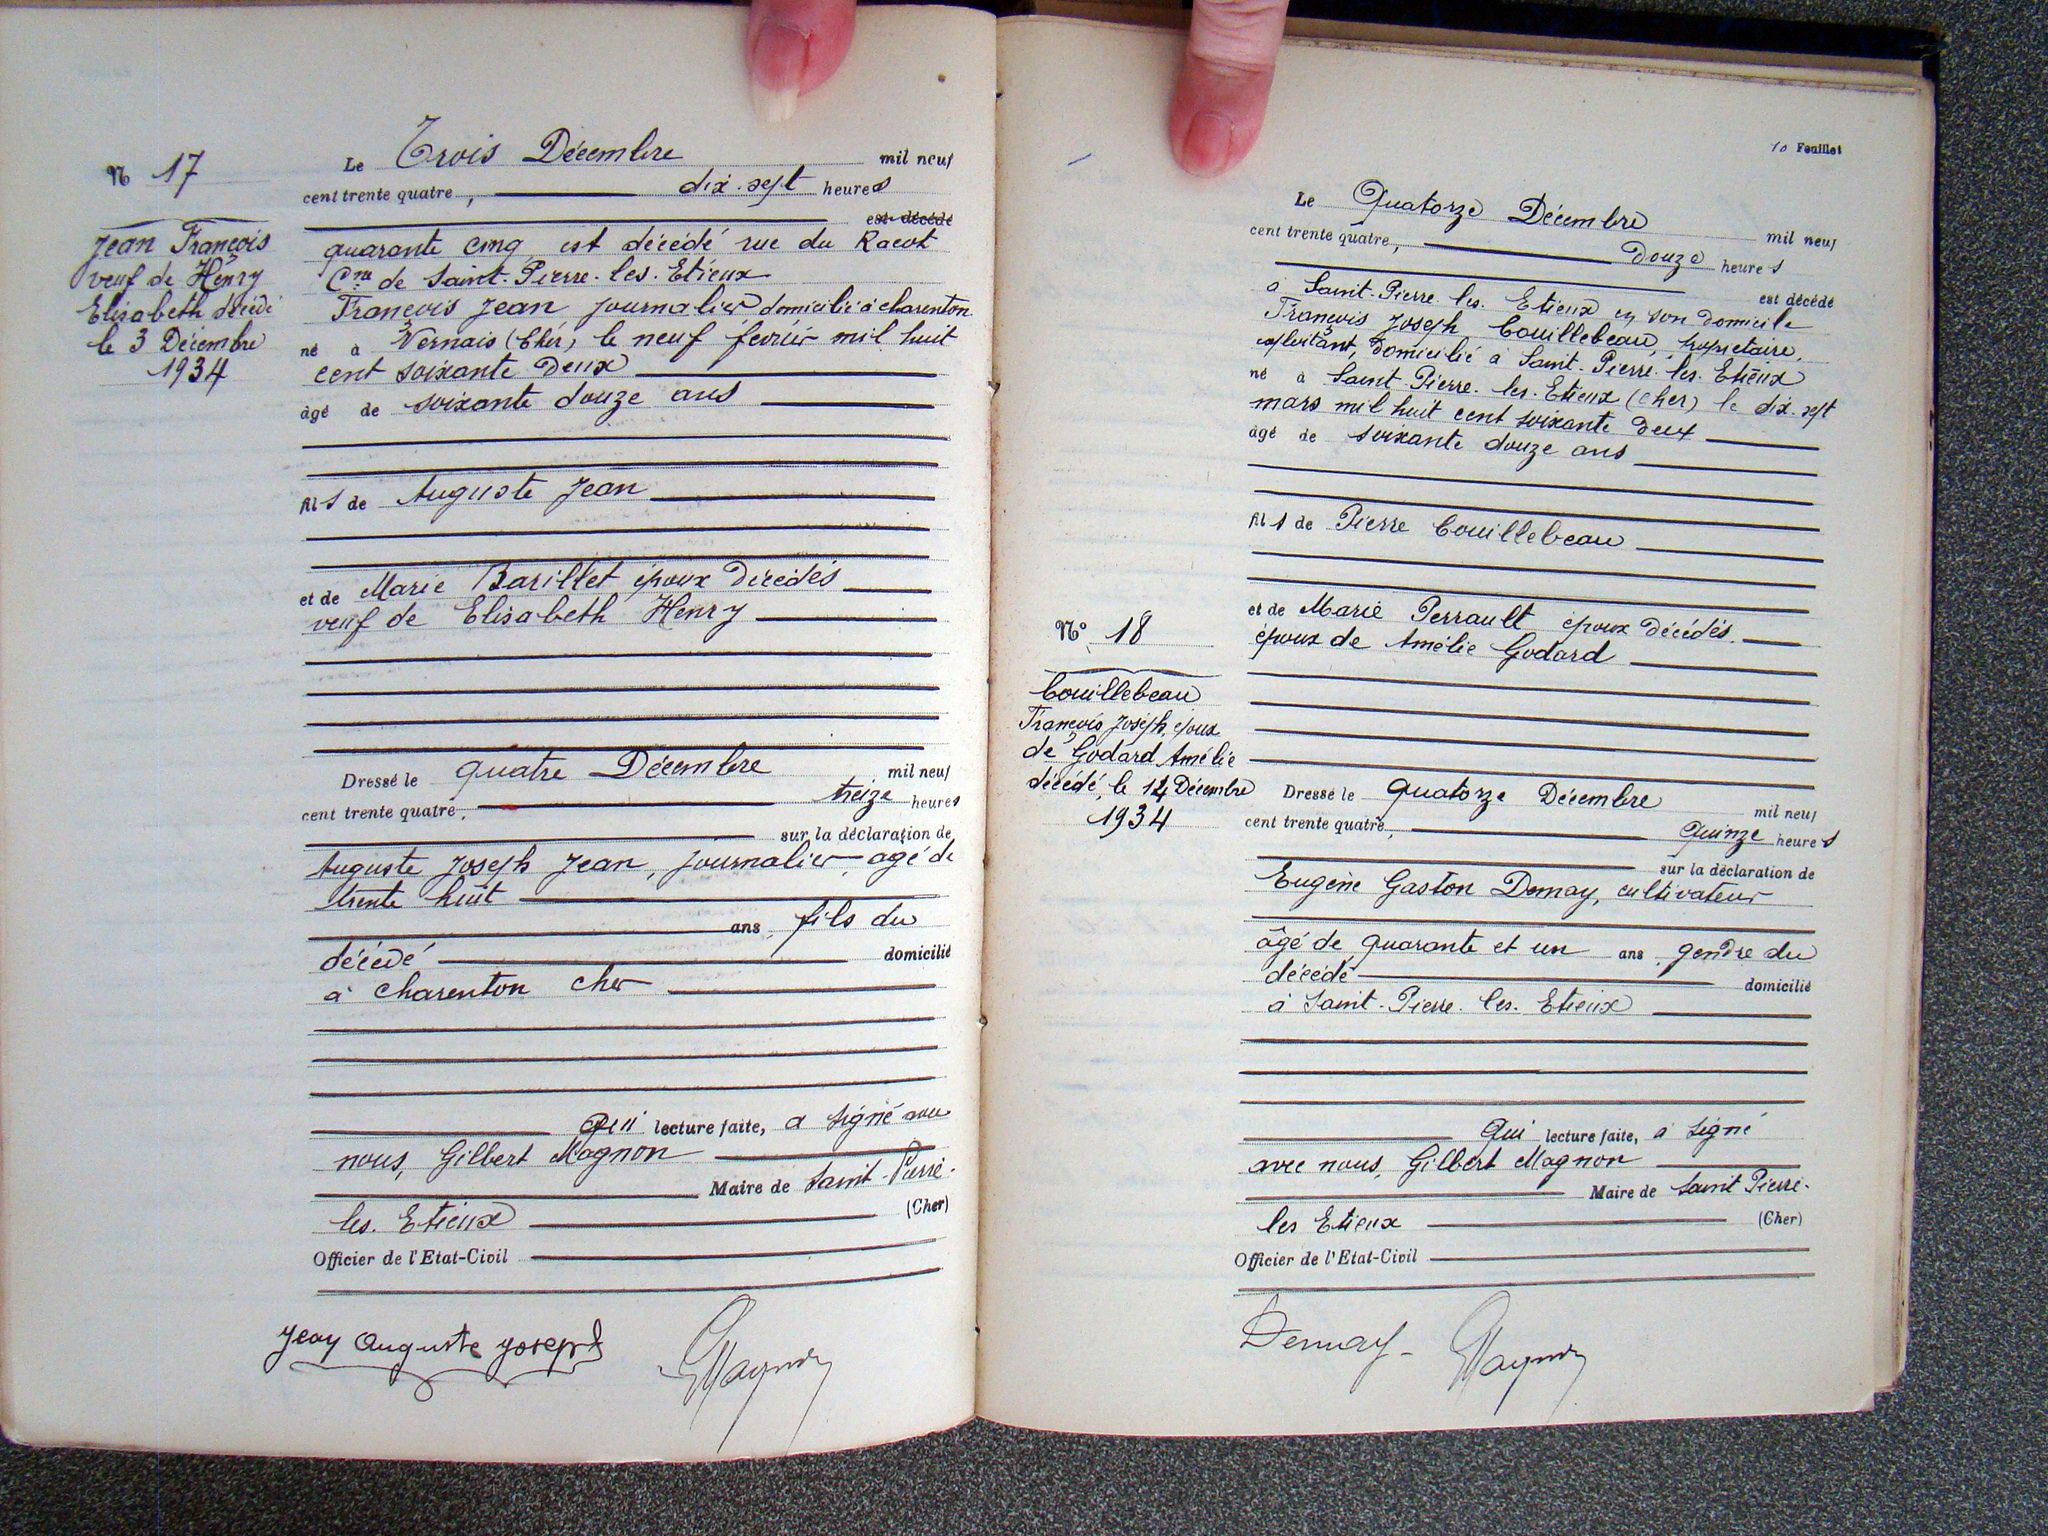 N 17
Jean François
veuf de Henry
Elisabeth décédé
le 3 Décembre
1934
Le Trois Décembre mil neuf
cent trente quatre, dix-sept heures
est décédé
quarante cinq est décédé rue du Racot
Cne de Saint-Pierre-les-Etieux
François Jean journalier domicilié à charenton
né à Vernais (Cher) le neuf février mil huit
cent soixante deux
âgé de soixante douze ans
fils de Auguste Jean
et de Marie Barillet époux décédés
veuf de Elisabeth Henry
Dressé le quatre Décembre mil neuf
cent trente quatre, treize heures
sur la déclaration de
Auguste Joseph Jean, journalier, âgé de
trente huit
ans, fils du
décédé domicilié
à Charenton Cher
Qui lecture faite, a signé avec
nous, Gilbert Magnon
Maire de Saint-Pierre-
les-Etieux (Cher)
Officier de l'Etat-Civil
Jean Auguste Joseph
GMagnon
10 Feuillet
Le Quatorze Décembre mil neuf
cent trente quatre, Douze heures
est décédé
à Saint-Pierre-les-Etieux en son domicile
François Joseph Couillebeau, propriétaire,
exploitant, domicilié à Saint-Pierre-les-Etieux
né à Saint-Pierre-les-Etieux (Cher) le dix-sept
mars mil huit cent soixante deux
âgé de soixante douze ans
fils de Pierre Couillebeau
et de Marie Perrault époux décédés.
époux de Amélie Godard
N° 18
Couillebeau
François Joseph, époux
de Godard Amélie
décédé, le 14 Décembre
1934
Dressé le quatorze Décembre mil neuf
cent trente quatre, quinze heures
sur la déclaration de
Eugène Gaston Demay, cultivateur
âgé de quarante et un ans, gendre du
décédé domicilié
à Saint-Pierre-les-Etieux
Qui lecture faite, a signé
avec nous, Gilbert Magnon
Maire de Saint Pierre-
les Etieux (Cher)
Officier de l'Etat-Civil
Demay GMagnon